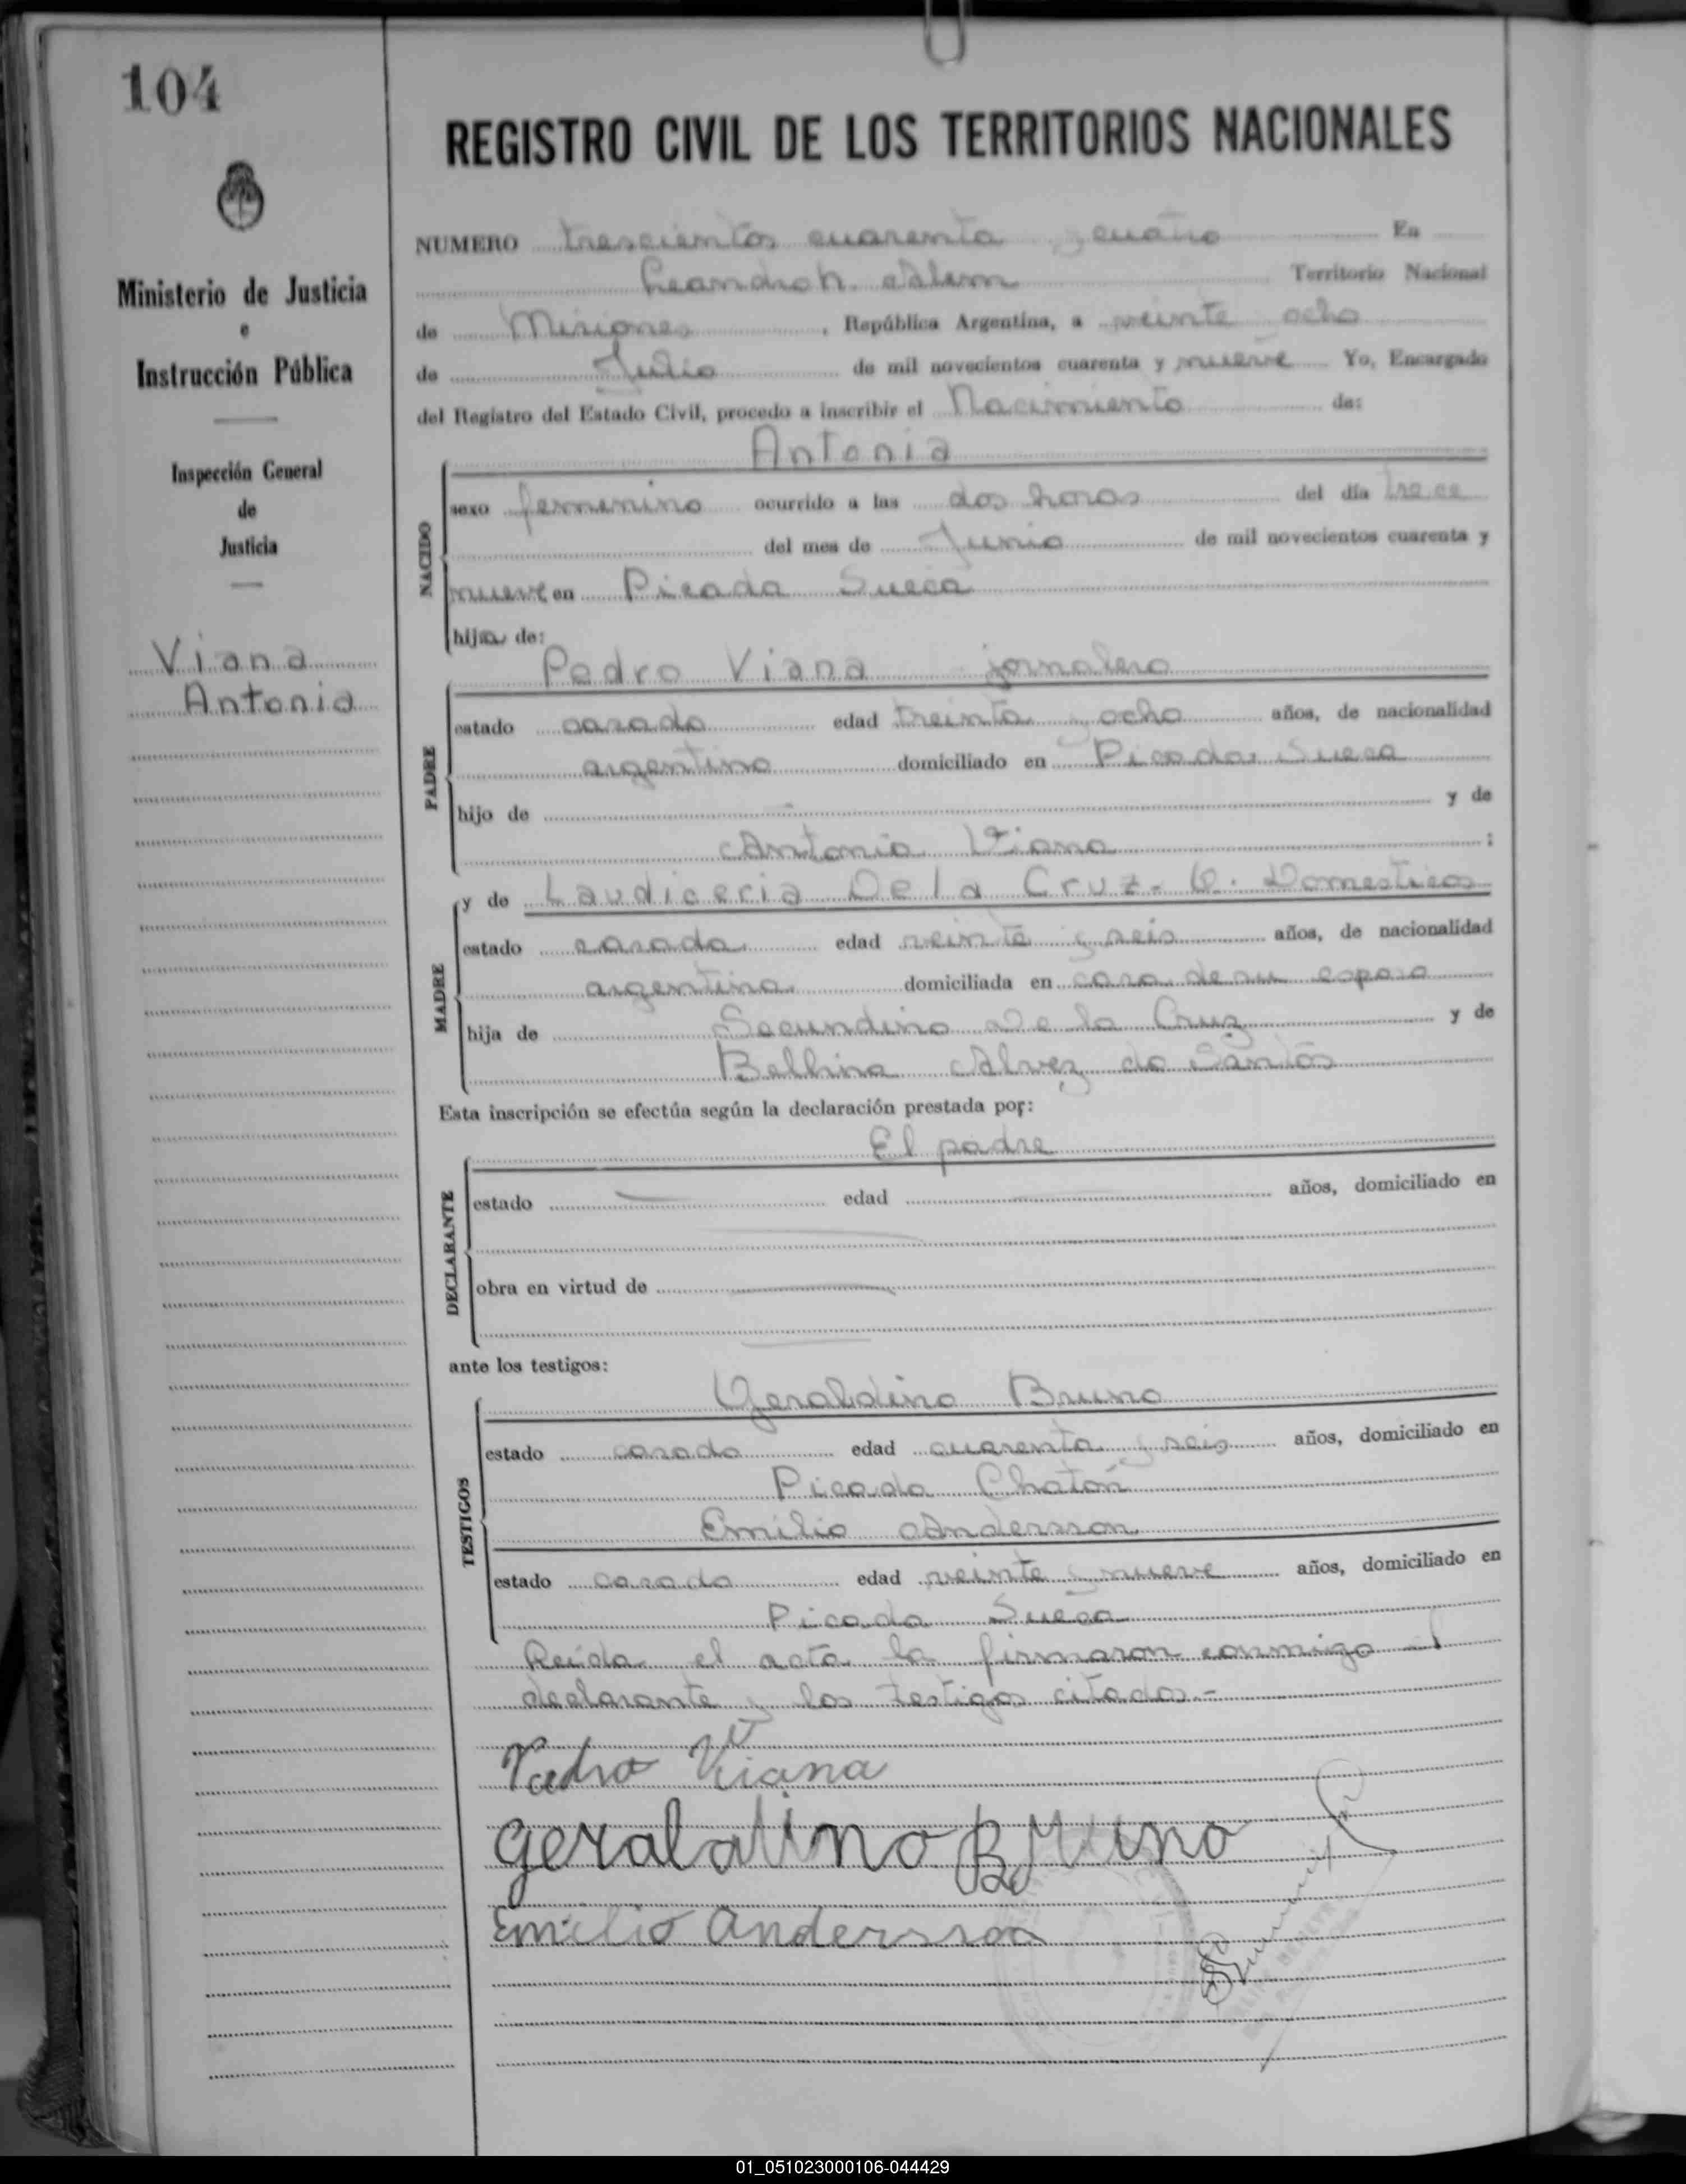 104
REGISTRO CIVIL DE LOS TERRITORIOS NACIONALES
Ministerio de Justicia
e
Instrucción Pública
Inspección General
de
Justicia
Viana
Antonia
NUMERO trescientos cuarenta y cuatro En
Leandro N. Alem Territorio Nacional
de Misiones, República Argentina, a veinte ocho
de Julio de mil novecientos cuarenta y nueve Yo, Encargado
del Registro del Estado Civil, procedo a inscribir el Nacimiento de:
Antonia
NACIDO
sexo femenino ocurrido a las dos horas del día trece
del mes de Junio de mil novecientos cuarenta y
nueve en Picada Sueca
hija de:
Pedro Viana jornalero
PADRE
estado casado edad treinta y ocho años, de nacionalidad
argentino domiciliado en Picada Sueca
hijo de y de
Antonia Viana;
y de Laudiceria De la Cruz - Q. Domesticos
MADRE
estado casada edad veinte y seis años, de nacionalidad
argentina domiciliada en casa de su esposo
hija de Secundino De la Cruz y de
Belbina Alvez do Santos
Esta inscripción se efectúa según la declaración prestada por:
El padre
DECLARANTE
estado edad años, domiciliado en
obra en virtud de
ante los testigos:
Geraldino Bruno
TESTIGOS
estado casado edad cuarenta y seis años, domiciliado en
Picada Chatón
Emilio Andersson
estado casado edad veinte y nueve años, domiciliado en
Picada Sueca
Leida el acta la firmaron conmigo el
declarante y los testigos citados.-
Pedro Viana
Geraldino Bruno
Emilio Andersson
01_051023000106-044429